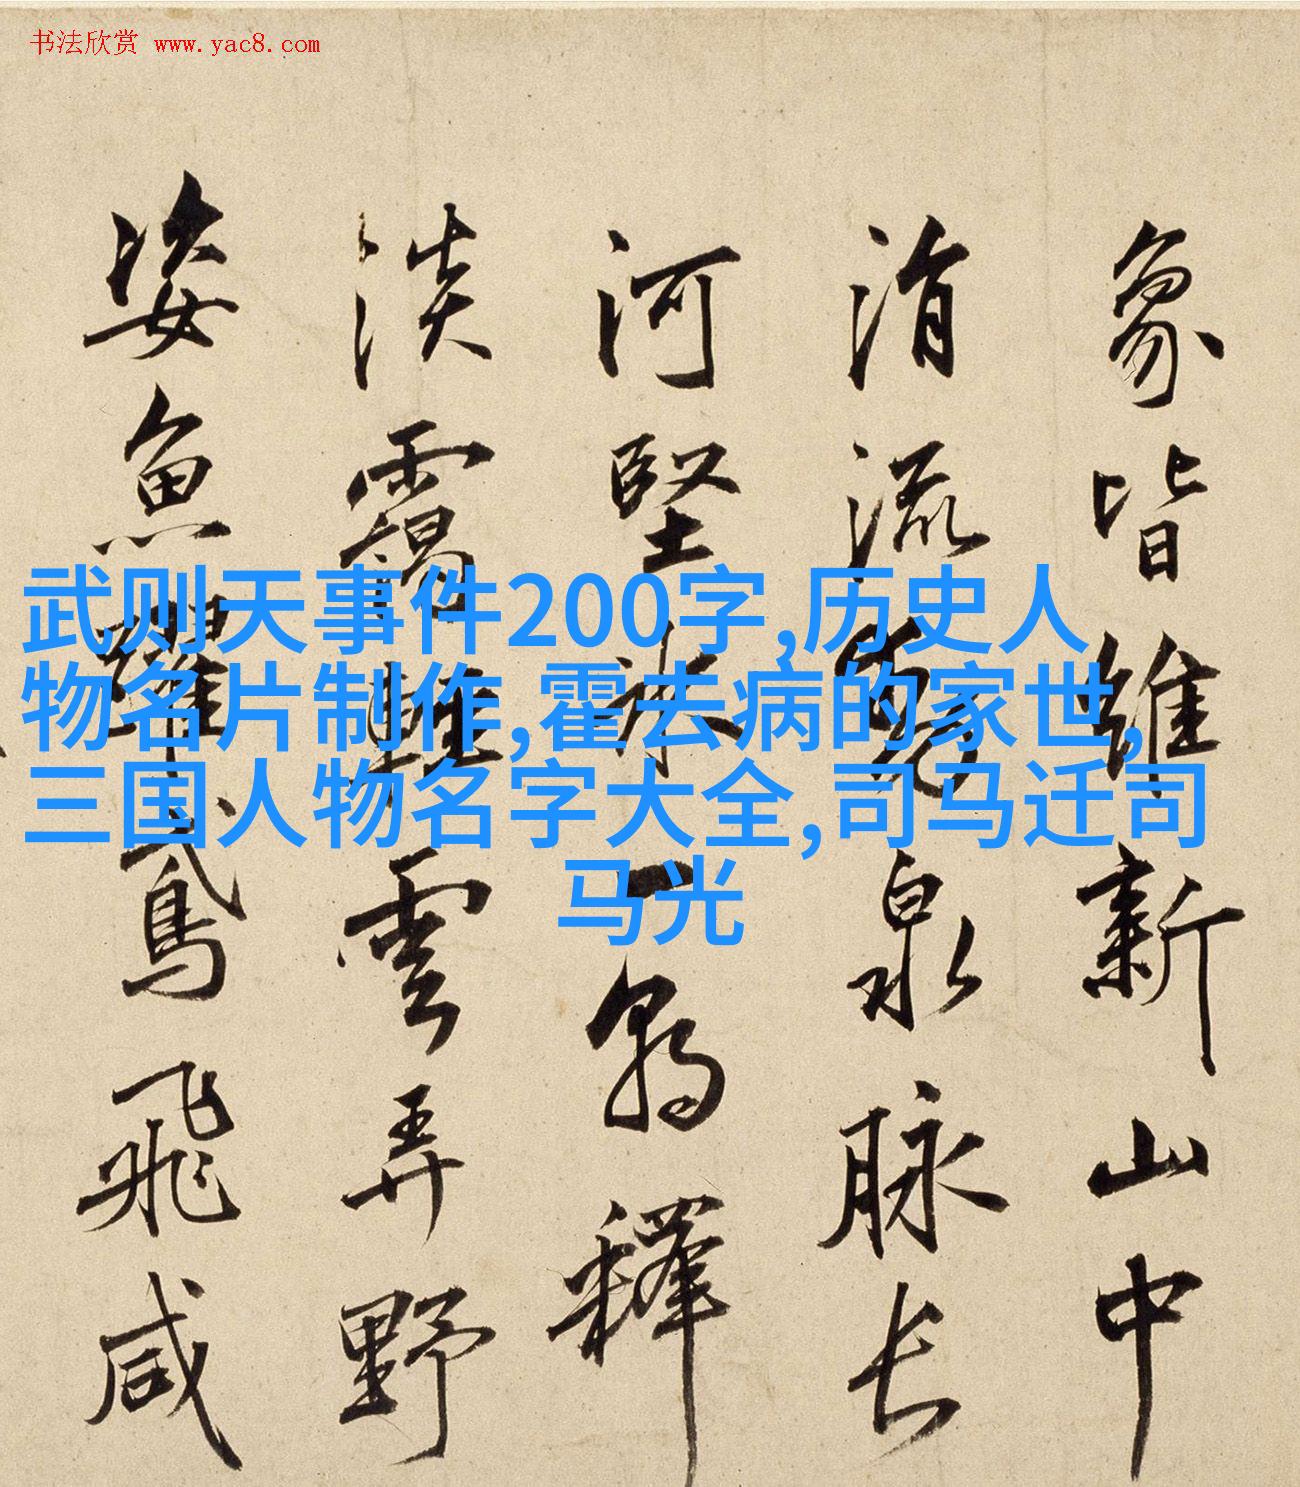 书法欣赏 www.yac8.com
武则天事件200字,历史人
物名片制作,霍去病的家世,
三国人物名字大全,司马迁司
马光
象皆維新山中
涓流泉脉长
河堅冰一朝釋
淡靄輕雲弄野
姿魚躍鳶飛咸